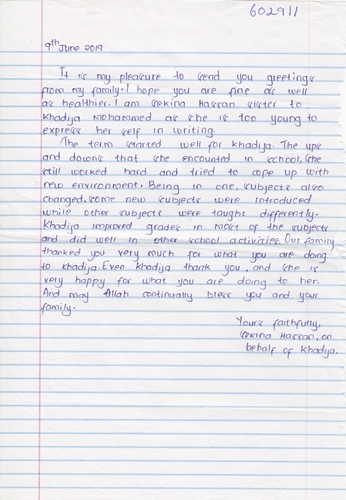 602911
9th June 2019
It is my pleasure to send you greetings
from my family. I hope you are fine as well
as healthier. I am Sekina Hassan sister to
Khadija Mohammed as she is too young to
express her self in writing.
The term started well for Khadija. The ups
and downs that she encounted in school, she
still worked hard and tried to cope up with
new environment. Being in one, subjects also
changed. Some new subjects were introduced
while other subjects were taught differently.
Khadija improved grades in most of the subjects
and did well in other school activities. Our family
thanked you very much for what you are doing
to Khadija. Even Khadija thank you, and she is
very happy for what you are doing to her.
And may Allah continually bless you and your
family.
Yours faithfully,
Sekina Hassan, on
behalf of Khadija.